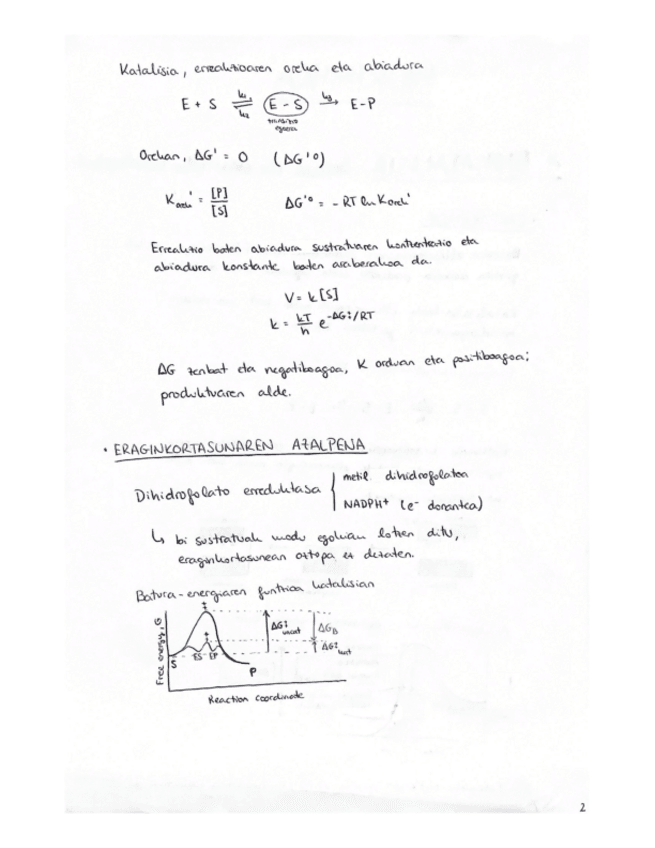 Katalisia, erreakzioaren oreka eta abiadura
E + S ⇌ E - S → E-P
k₁ k₂ k₃
trantsizio
egoera
Orekan, ΔG' = 0 (ΔG'°)
K orek' = [P]/[S] ΔG'° = - RT ln K orek'
Erreakzio baten abiadura sustratuaren kontzentrazio eta
abiadura konstante baten araberakoa da.
V = k [S]
k = kT/h e^-ΔG‡/RT
ΔG zenbat eta negatiboagoa, K orduan eta positiboagoa;
produktuaren alde.
· ERAGINKORTASUNAREN AZALPENA
Dihidrofolato erreduktasa
metil dihidrofolatoa
NADPH+ (e- donantea)
↳ bi sustratuak modu egokian lotzen ditu,
eraginkortasunean oztopa ez dezaten.
Batura-energiaren funtzioa katalisian
Free energy, G
‡
‡
S
ES
EP
P
ΔG‡ uncat
ΔG_B
ΔG‡ cat
Reaction coordinate
2